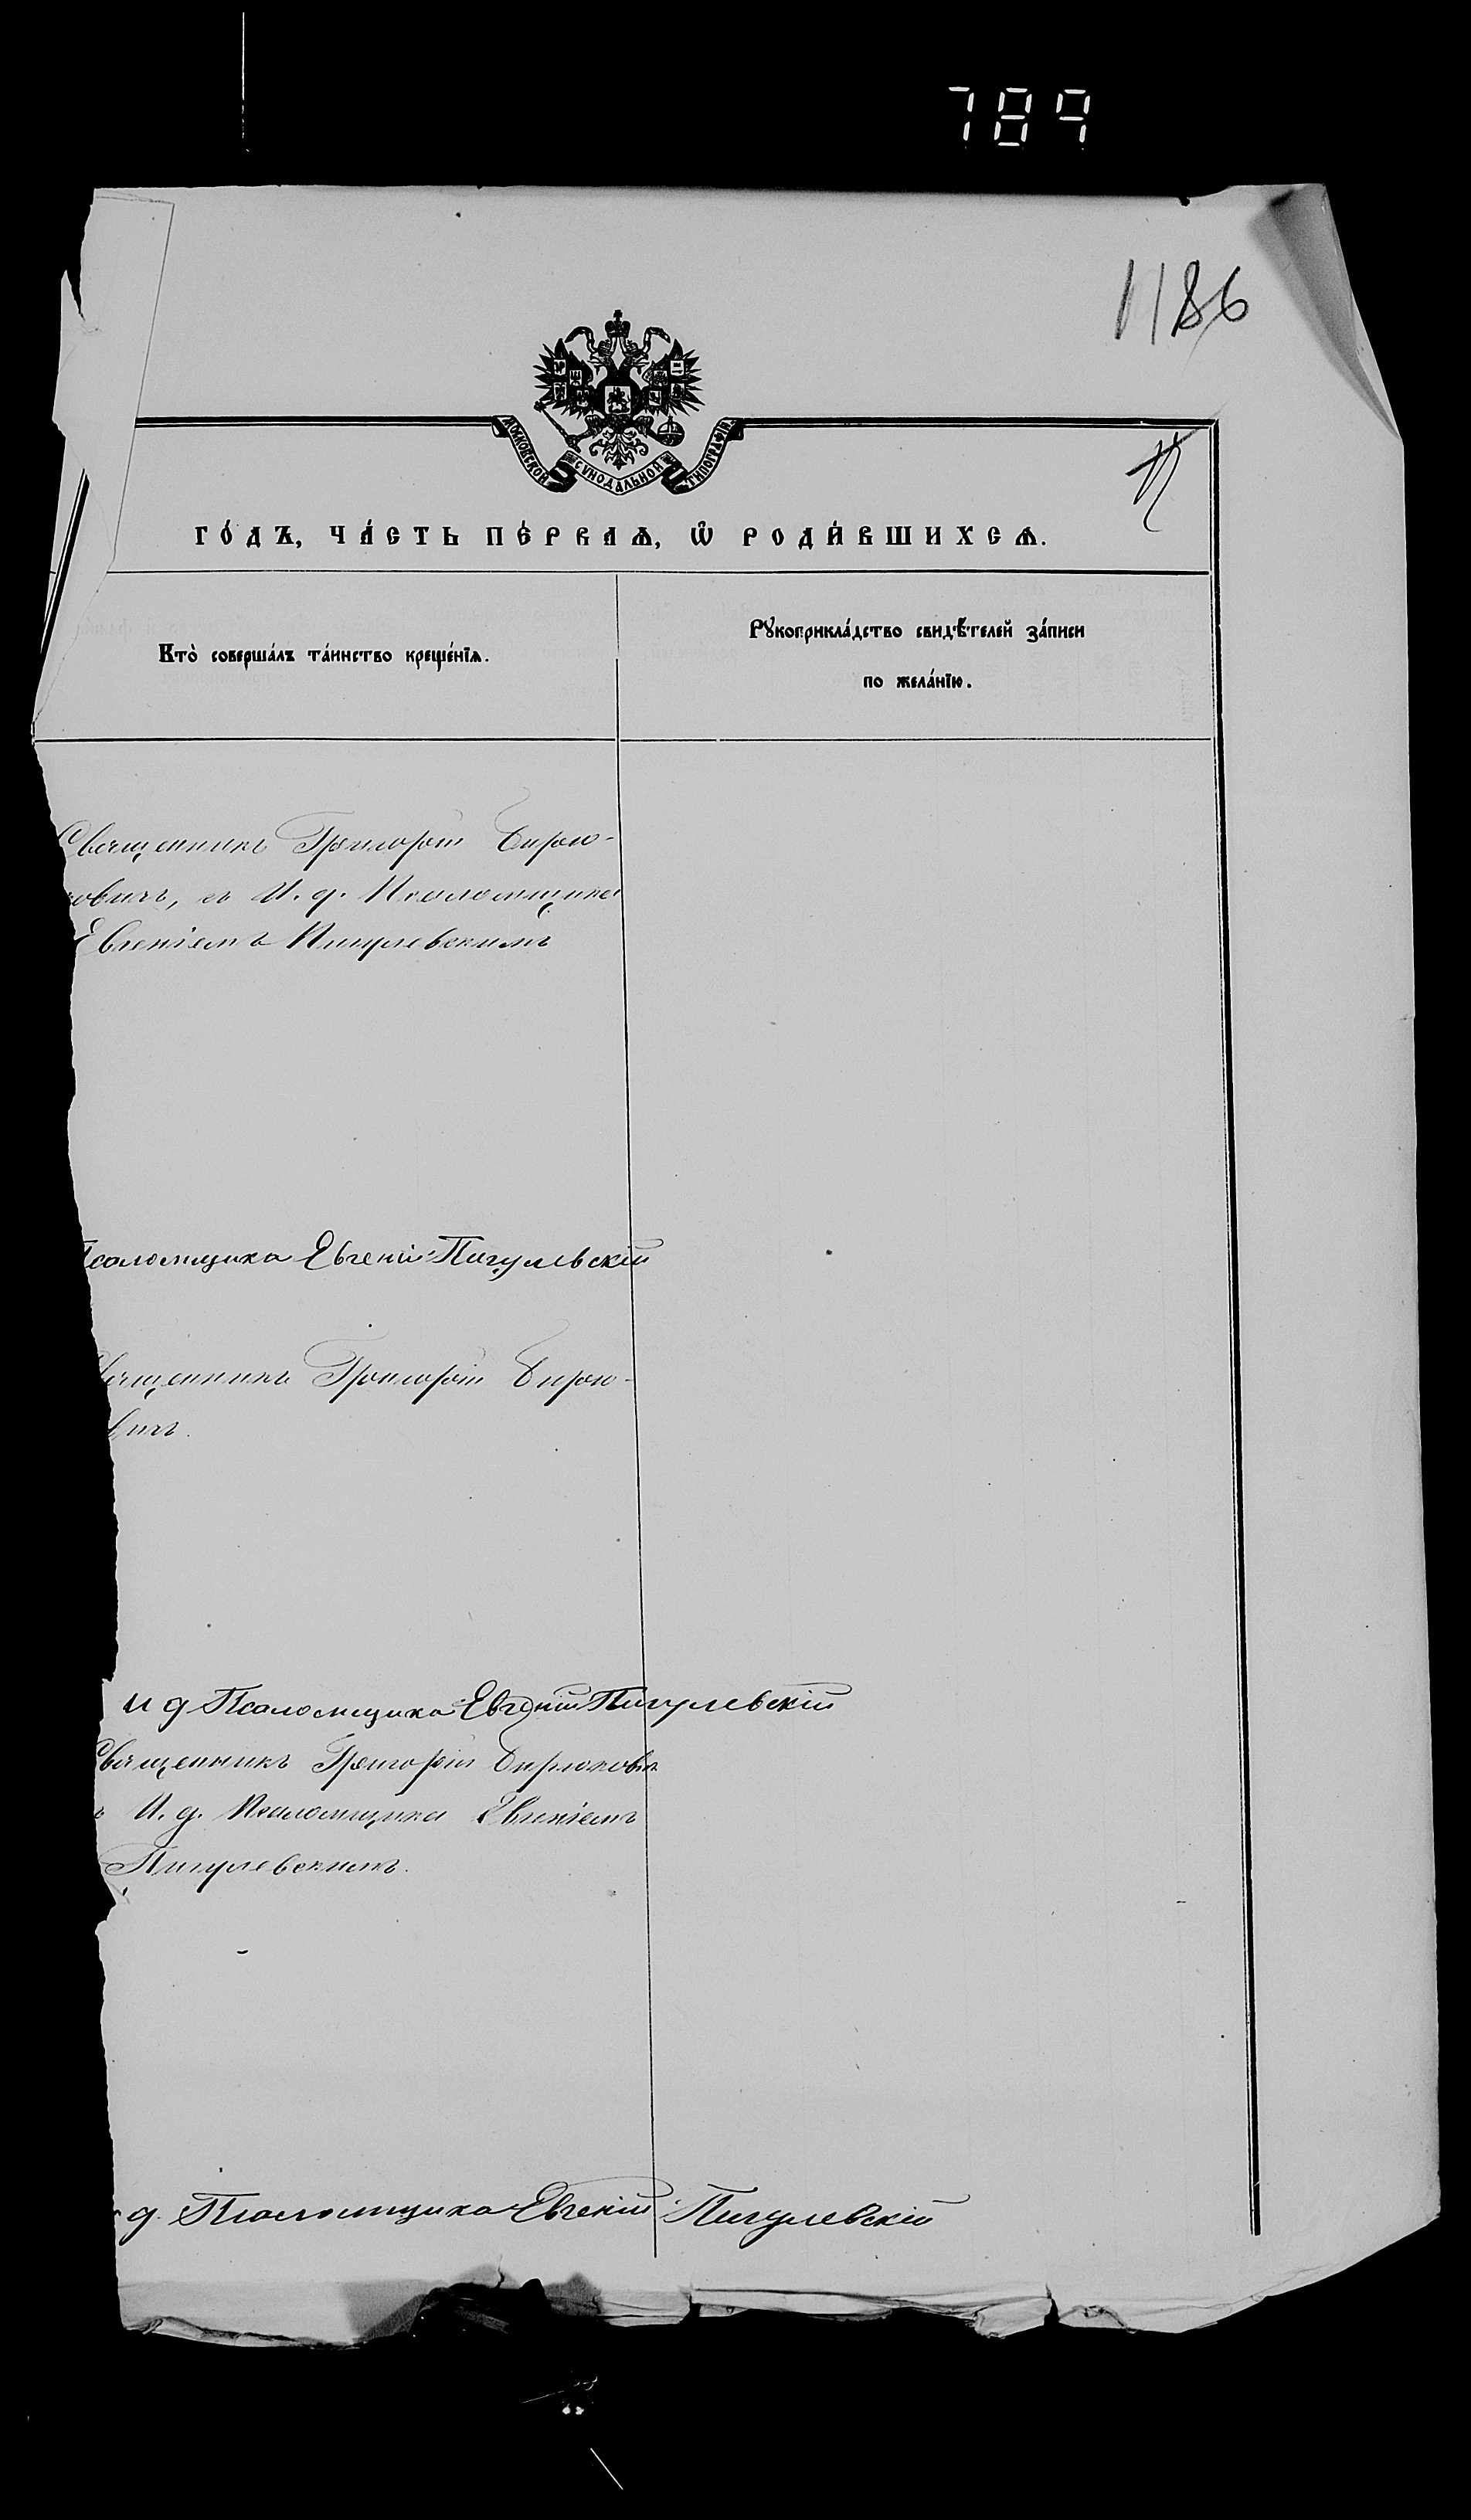 789
1186
МОСКОВСКОЙ СѴНОДАЛЬНОЙ ТИПОГРАФІИ
го́дъ, ча́сть пе́рваѧ, ѡ҆ роди́вшихсѧ.
Кто̀ соверша́лъ та́инство креще́нїѧ.
Рꙋкоприкла́дство свидѣ́телей за́писи
по жела́нїю.
Священникъ Григорій Бирю-
ковичъ, съ И. д. Псаломщика
Евгеніемъ Пигулевскимъ
Псаломщика Евгеній Пигулевскій
Священникъ Григорій Бирю-
вичъ.
И д Псаломщика Евгеній Пигулевскій
Священникъ Григорій Бирюкович
ъ И. д. Псаломщика Евгеніемъ
Пигулевскимъ.
д. Псаломщика Евгеній Пигулевскій